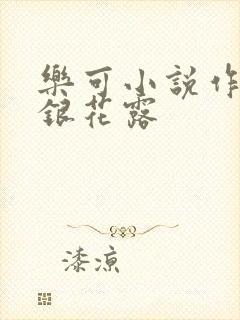 樂可小說作
銀花露
漆涼